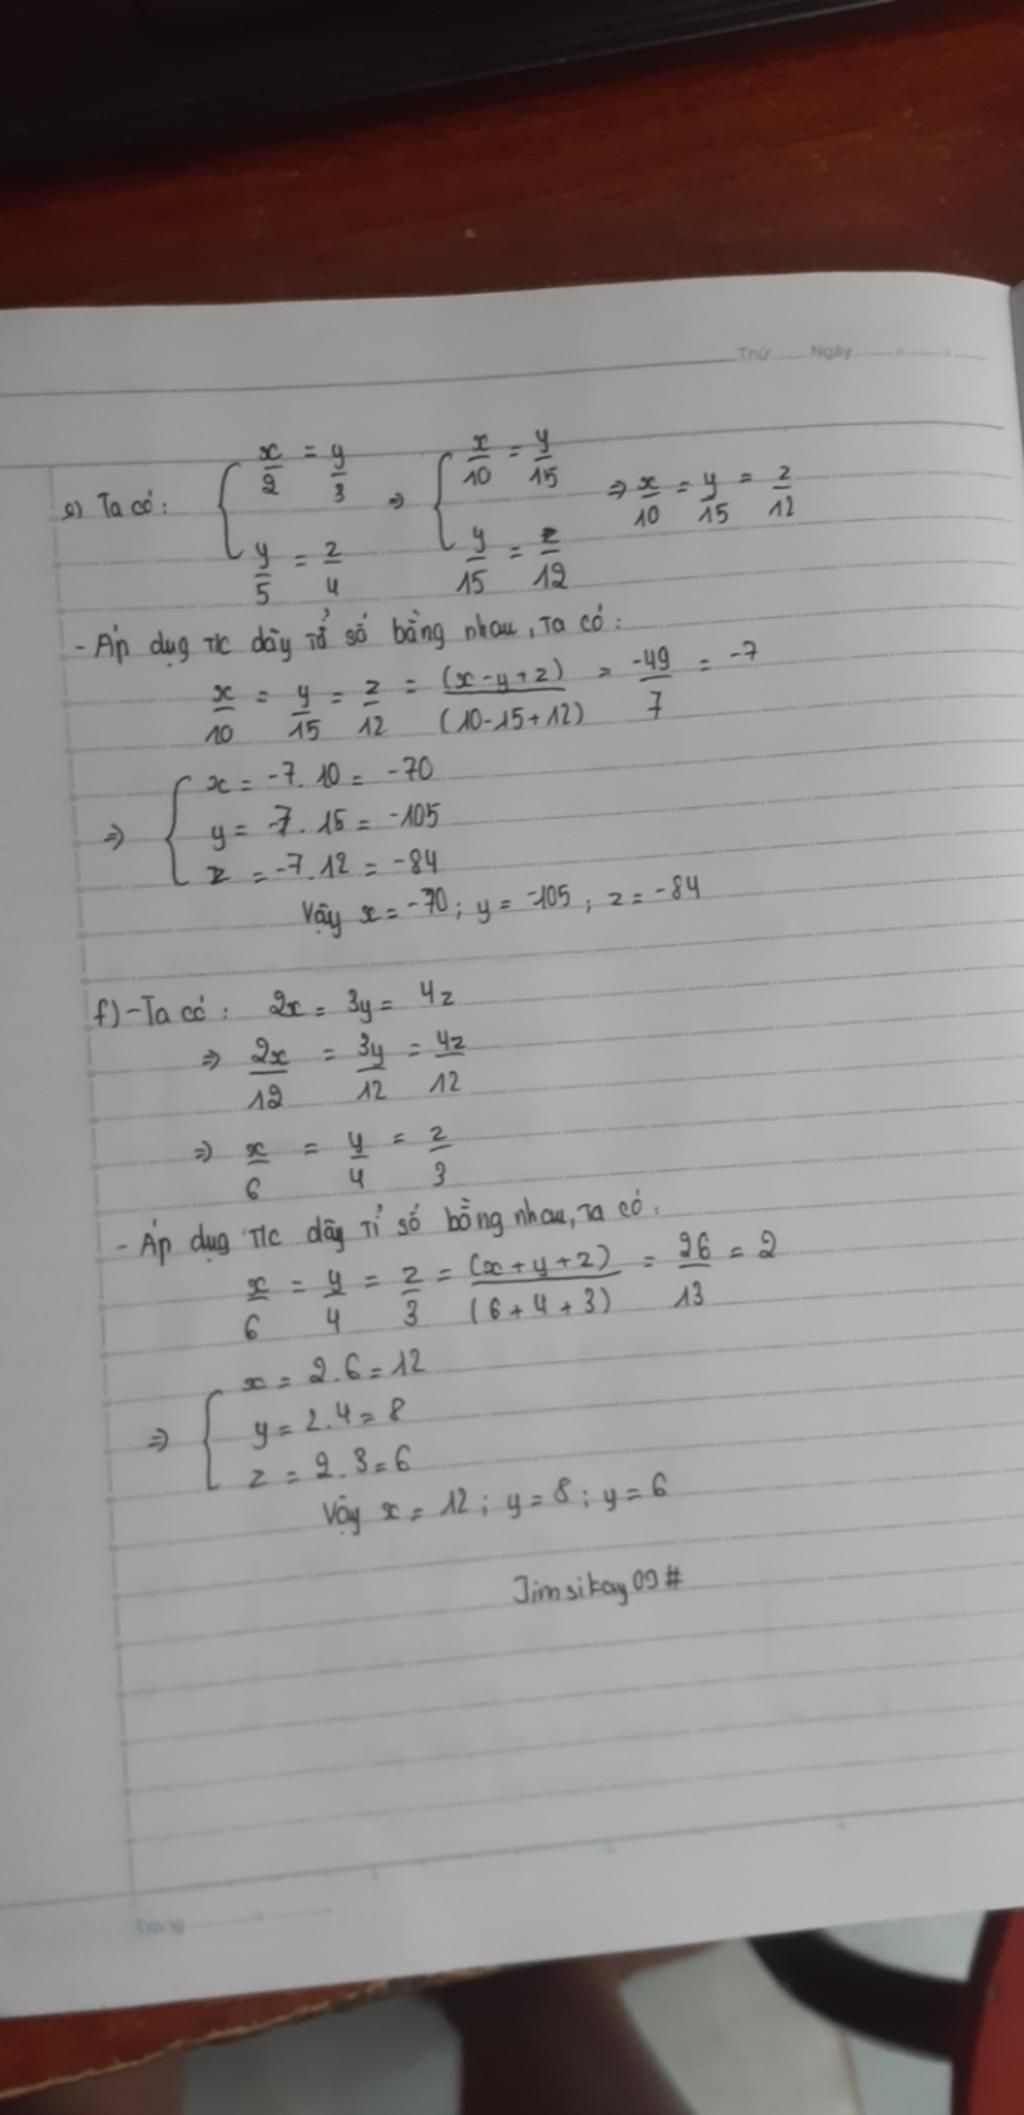 Thứ...... Ngày............
e) Ta có: { x/2 = y/3 ; y/5 = z/4 => { x/10 = y/15 ; y/15 = z/12 => x/10 = y/15 = z/12
- Áp dụg T/c dãy Tỉ số bằng nhau, Ta có:
x/10 = y/15 = z/12 = (x-y+z)/(10-15+12) = -49/7 = -7
=> { x = -7.10 = -70
y = -7.15 = -105
z = -7.12 = -84
Vậy x = -70; y = -105; z = -84
f) - Ta có: 2x = 3y = 4z
=> 2x/12 = 3y/12 = 4z/12
=> x/6 = y/4 = z/3
- Áp dụg T/c dãy Tỉ số bằng nhau, Ta có:
x/6 = y/4 = z/3 = (x+y+z)/(6+4+3) = 26/13 = 2
=> { x = 2.6 = 12
y = 2.4 = 8
z = 2.3 = 6
Vậy x = 12; y = 8; y = 6
Jimsikay09#
Trang